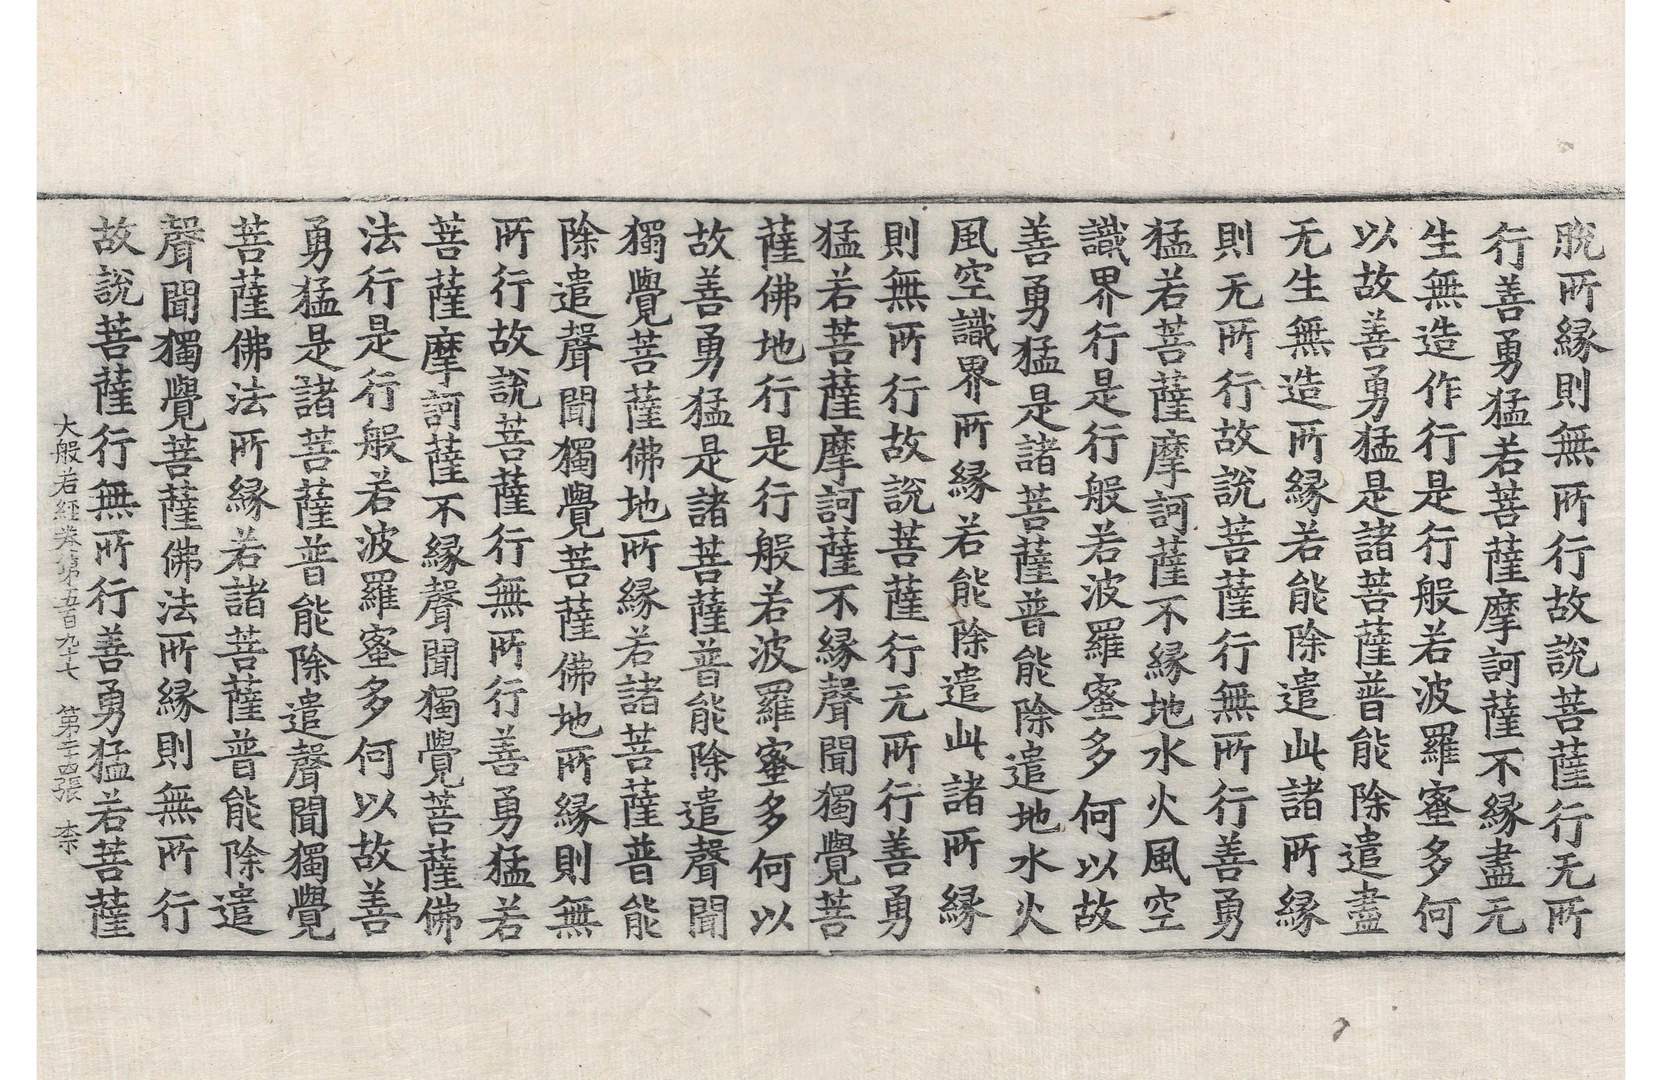 脫所縁則無所行故說菩薩行无所
行善勇猛若菩薩摩訶薩不縁盡无
生無造作行是行般若波羅蜜多何
以故善勇猛是諸菩薩普能除遣盡
无生無造所縁若能除遣此諸所縁
則无所行故說菩薩行無所行善勇
猛若菩薩摩訶薩不縁地水火風空
識界行是行般若波羅蜜多何以故
善勇猛是諸菩薩普能除遣地水火
風空識界所縁若能除遣此諸所縁
則無所行故說菩薩行无所行善勇
猛若菩薩摩訶薩不縁聲聞獨覺菩
薩佛地行是行般若波羅蜜多何以
故善勇猛是諸菩薩普能除遣聲聞
獨覺菩薩佛地所縁若諸菩薩普能
除遣聲聞獨覺菩薩佛地所縁則無
所行故說菩薩行無所行善勇猛若
菩薩摩訶薩不縁聲聞獨覺菩薩佛
法行是行般若波羅蜜多何以故善
勇猛是諸菩薩普能除遣聲聞獨覺
菩薩佛法所縁若諸菩薩普能除遣
聲聞獨覺菩薩佛法所縁則無所行
故說菩薩行無所行善勇猛若菩薩
大般若經卷第五百九十七 第二十四張 柰